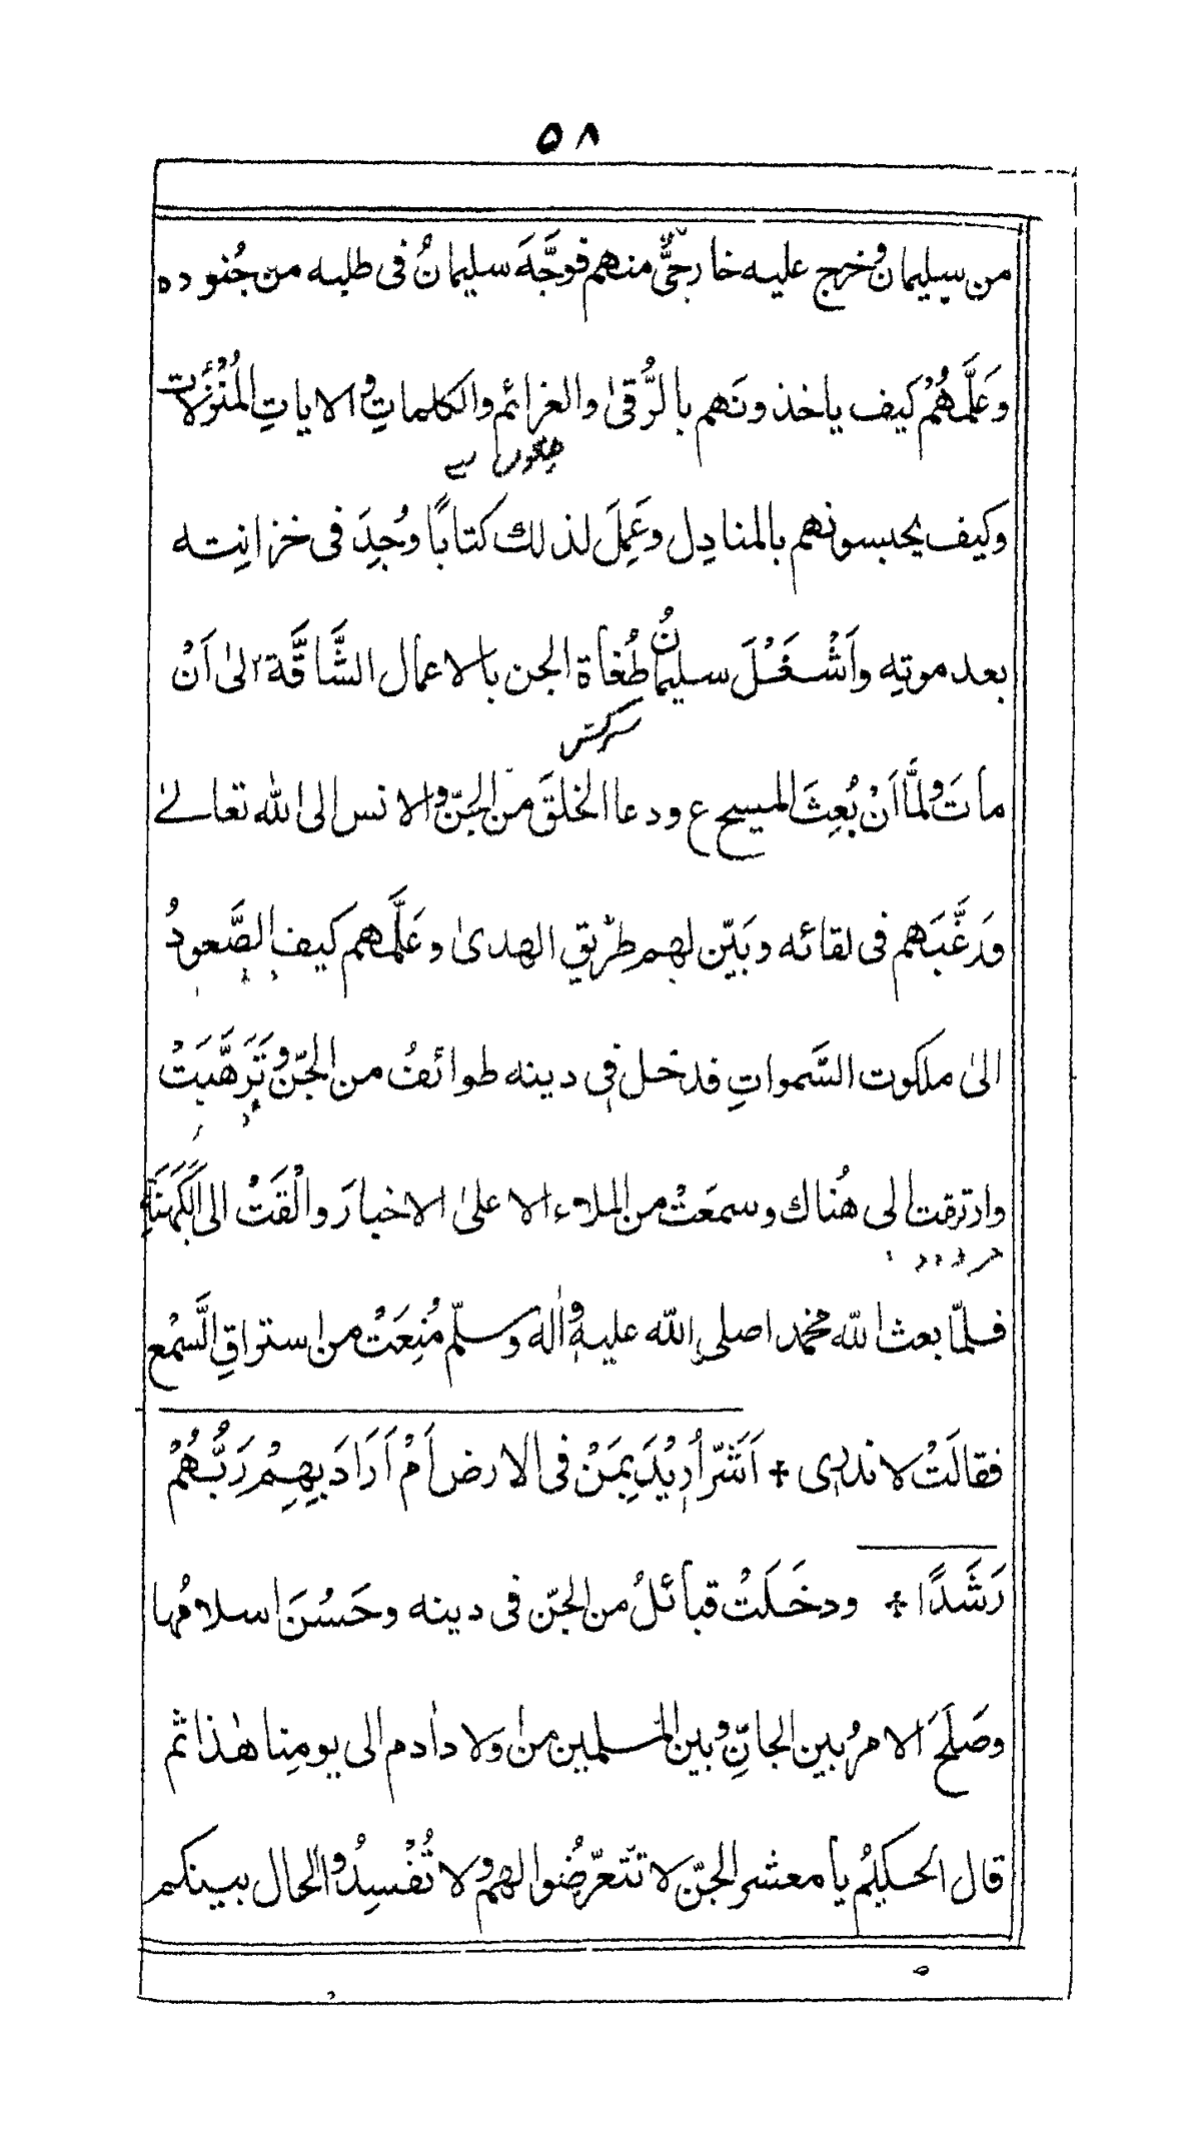 ٥٨
من سليمان وخرج عليه خارجيٌّ منهم فوجَّهَ سليمانُ فى طلبه من جُنوده
وَعَلَّمَهُمْ كَيف ياخذونَهم بالرُّقىٰ والعزائم والكلماتِ والاياتِ المُنْزَلات
وكيف يحبسونهم بالمنادِل وعَمِلَ لذلك كتابًا وُجِدَ فى خزانِته
بعد موتِه وَاَشْغَلَ سليمانُ طُغاةَ الجن بالاعمال الشَّاقَّة الىٰ اَنْ
سرکش
ماتَ ولمَّا اَنْ بُعِثَ المسيح ع ودعا الخلقَ من الجنّ والانس الى الله تعالےٰ
وَرَغَّبَهم فى لقائه وبَيّن لهم طريق الهدىٰ وعَلَّمهم كيف الصَّعودُ
الىٰ ملكوت السَّمواتِ فدخل فى دينه طوائفُ من الجنّ وتَرَهَّبَتْ
وارتقت الى هُناك وسمعَتْ من الملاء الاعلىٰ الاخبارَ والْقَتْ الى الكَهَنَةِ
فلمّا بعث الله محمدا صلى الله عليه واٰله وسلّم مُنِعَتْ من استراقِ السَّمْع
فقالَتْ لا ندرى + اَشَرّ اُرِيْدَ بِمَنْ فى الارض اَمْ اَرَادَ بِهِمْ رَبُّهُمْ
رَشَدًا + ودخَلَتْ قبائلُ من الجنّ فى دينه وحَسُنَ اسلامُها
وصَلَحَ الامرُ بين الجانِّ وبين المسلمين من اولاد اٰدم الى يومِنا هٰذا ثم
قال الحكيمُ يا معشر الجنّ لا تتعرّضُوا لهم ولا تُفْسِدُوا الحال بينكم